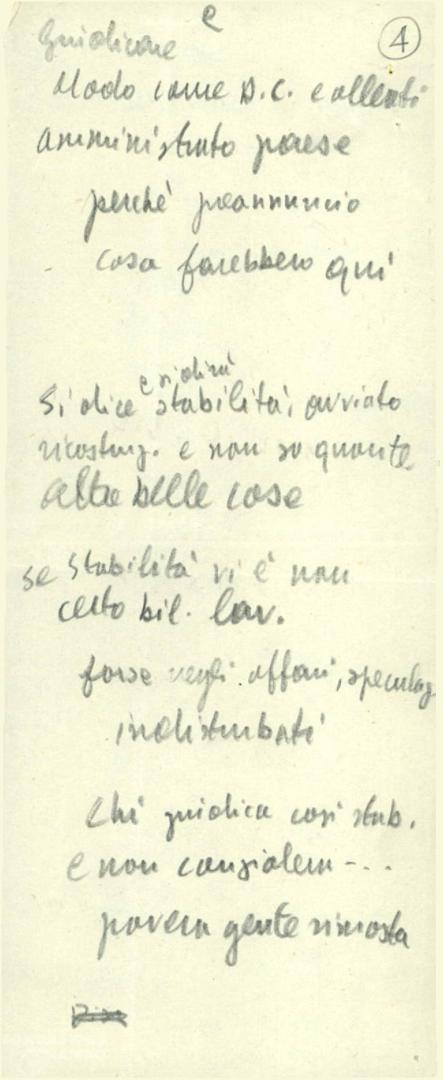 e
4
Giudicare
Modo come D.C. e alleati
amministrato paese
perchè preannuncio
cosa farebbero qui
e si dirà
Si dice stabilità, avviato
ricostruz. e non so quante
altre belle cose
se stabilità vi è non
certo bil. lav.
forse negli affari, speculaz.
indisturbati
Chi giudica così stab.
e non considera - . .
povera gente rimasta